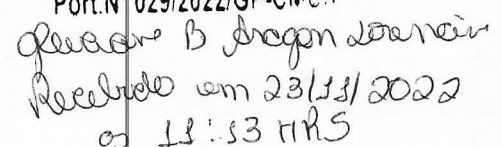 Port.Nº 029/2022/GP-
B Aragon
Recebido em 23/11/2022
as 11:13 HRS